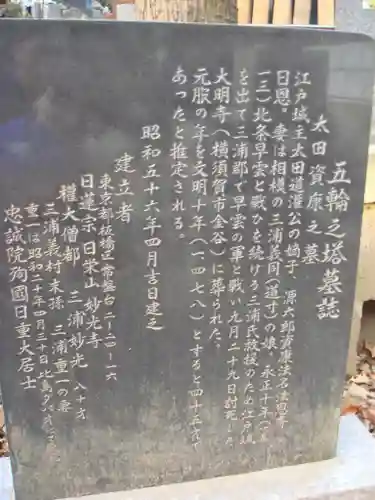 五輪之塔墓誌
太田資康之墓
江戸城主太田道灌公の嫡子 源六郎資康法名法恩斎
日恩。妻は相模の三浦義同(道寸)の娘。永正十年(一五
一三)北条早雲と戦ひを続ける三浦氏救援のため江戸城
を出て三浦郡で早雲の軍と戦い九月二十九日討死した
大明寺(横須賀市金谷)に葬られた。
元服の年を文明十年(一四七八)とすると四十五才で
あったと推定される。
昭和五十六年四月吉日建之
建立者
東京都板橋区常盤台二ー二四ー一六
日蓮宗 日栄山 妙光寺
権大僧都 三浦妙光 八十才
三浦義村末孫 三浦重一の妻
重一は昭和二十年四月三十日比島
忠誠院殉國日重大居士